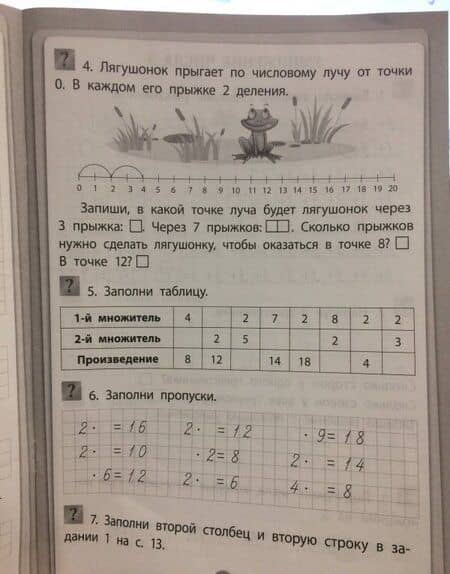 ? 4. Лягушонок прыгает по числовому лучу от точки
0. В каждом его прыжке 2 деления.
0 1 2 3 4 5 6 7 8 9 10 11 12 13 14 15 16 17 18 19 20
Запиши, в какой точке луча будет лягушонок через
3 прыжка: □. Через 7 прыжков: □□. Сколько прыжков
нужно сделать лягушонку, чтобы оказаться в точке 8? □
В точке 12? □
? 5. Заполни таблицу.
1-й множитель 4 2 7 2 8 2 2
2-й множитель 2 5 2 3
Произведение 8 12 14 18 4
? 6. Заполни пропуски.
2· = 16 2· = 12 · 9 = 18
2· = 10 · 2 = 8 2· = 14
· 6 = 12 2· = 6 4· = 8
? 7. Заполни второй столбец и вторую строку в за-
дании 1 на с. 13.